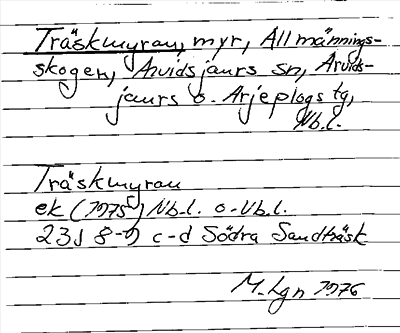 Träskmyran, myr, Allmännings-
skogen, Arvidsjaurs sn, Arvids-
jaurs o. Arjeplogs tg,
Nb.l.
Träskmyran
ek (1975) Nb.l. o. Vb.l.
23J 8-9 c-d Södra Sandträsk
M. Lgn 1976